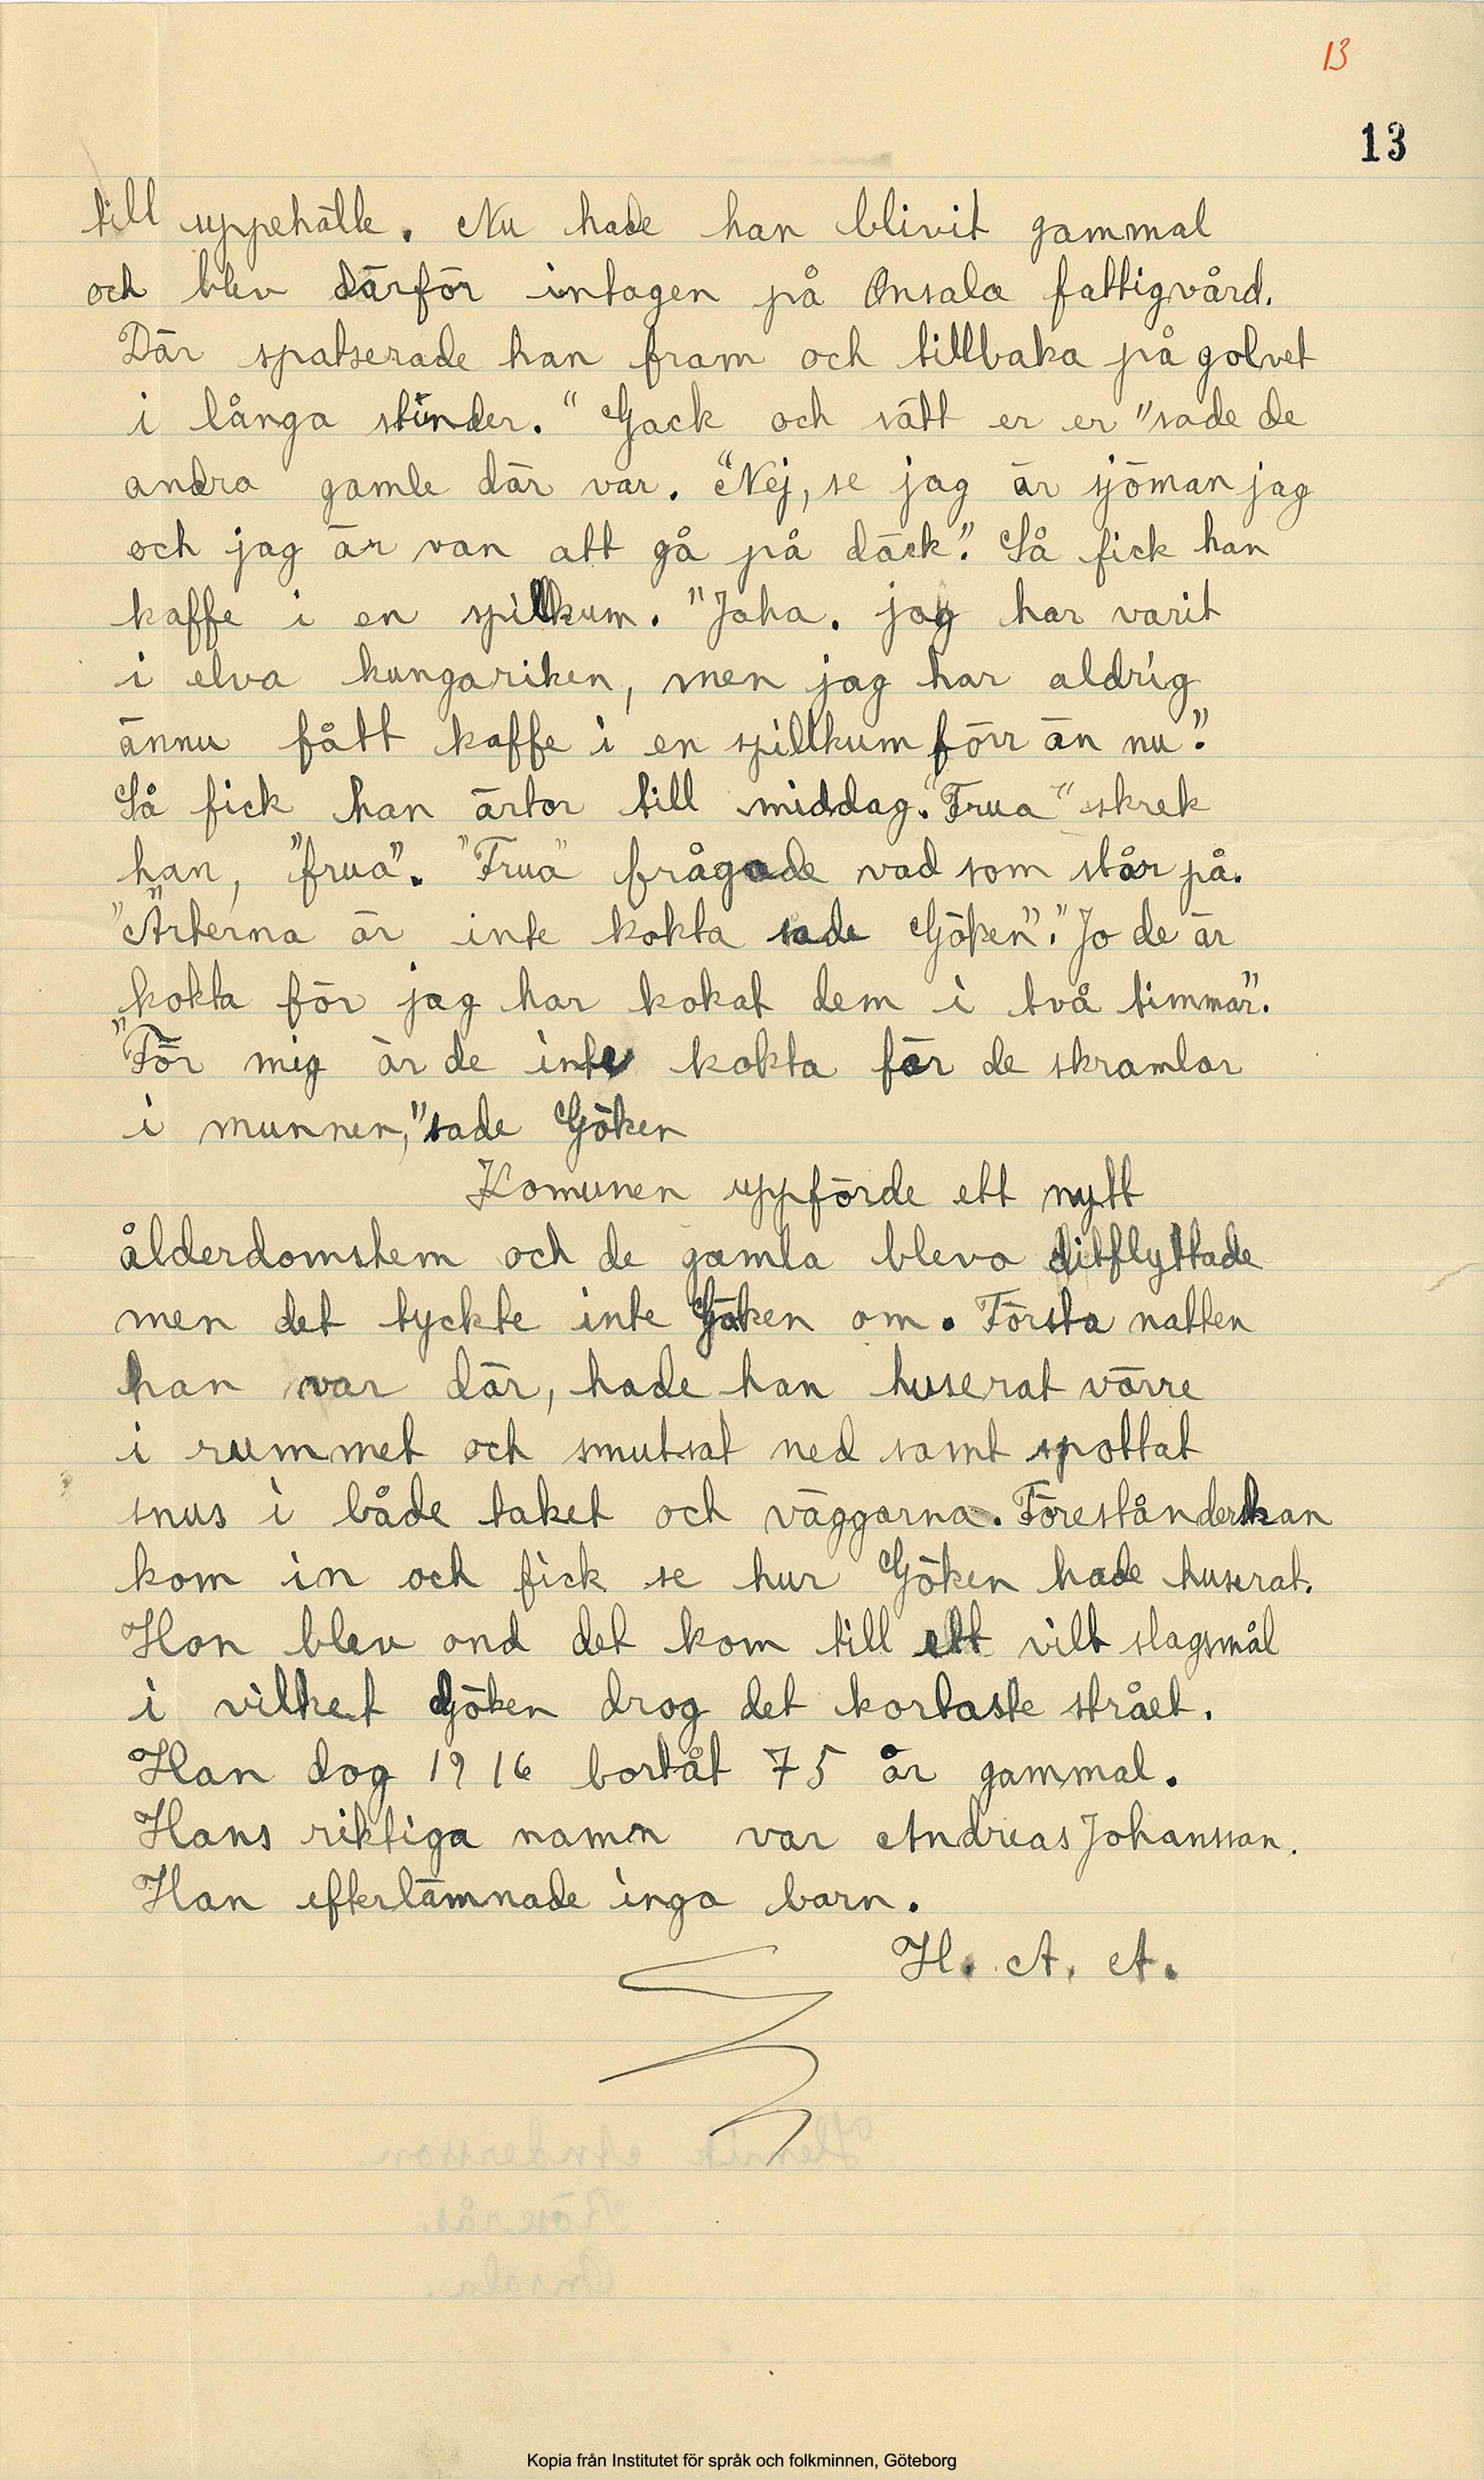 13
13
till uppehälle. Nu hade han blivit gammal
och blev därför intagen på Onsala fattigvård.
Där spatserade han fram och tillbaka på golvet
i långa stunder. "Gack och sätt er er" sade de
andra gamle där var. "Nej, se jag är sjöman jag
och jag är van att gå på däck". Så fick han
kaffe i en spillkum. "Joha. jag har varit
i elva kungariken, men jag har aldrig
ännu fått kaffe i en spillkum förr än nu".
Så fick han ärtor till middag. "Frua" skrek
han, "frua". "Frua" frågade vad som står på.
"Ärterna är inte kokta sade Göken". "Jo de är
kokta för jag har kokat dem i två timmar".
"För mig är de inte kokta för de skramlar
i munnen," sade Göken
Komunen uppförde ett nytt
ålderdomshem och de gamla blevo ditflyttade
men det tyckte inte Göken om. Första natten
han var där, hade han huserat värre
i rummet och smutsat ned samt spottat
snus i både taket och väggarna. Förestånderskan
kom in och fick se hur Göken hade huserat.
Hon blev ond det kom till ett vilt slagsmål
i vilket Göken drog det kortaste strået.
Han dog 1916 bortåt 75 år gammal.
Hans riktiga namn var Andreas Johansson.
Han efterlämnade inga barn.
H. A. A.
Kopia från Institutet för språk och folkminnen, Göteborg